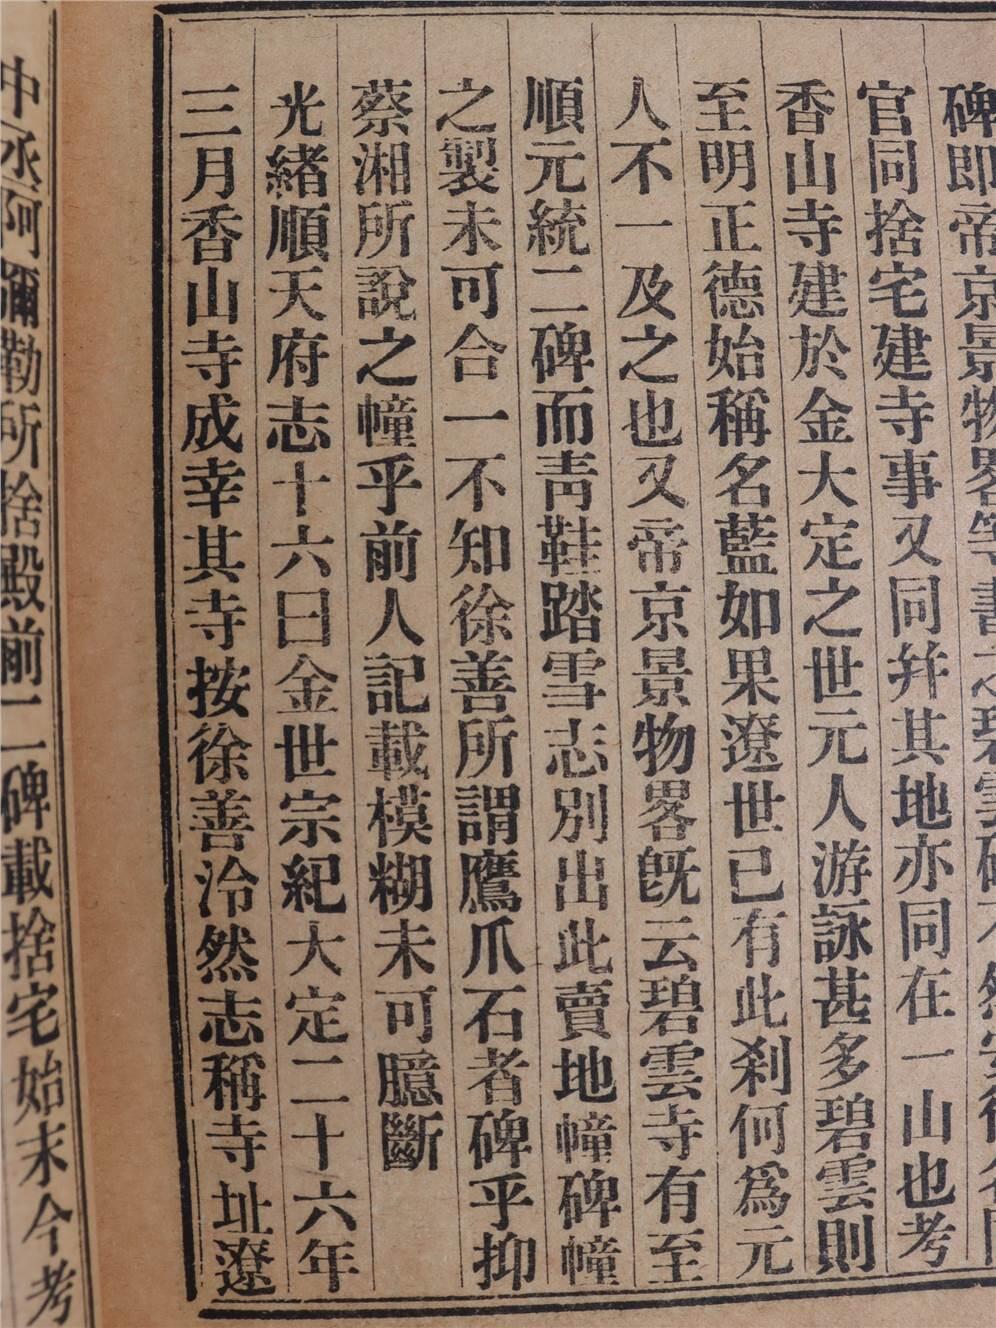 碑即帝京景物畧等書之碧雲碑不然安得名同
官同捨宅建寺事又同幷其地亦同在一山也考
香山寺建於金大定之世元人游詠甚多碧雲則
至明正德始稱名藍如果遼世已有此刹何爲元
人不一及之也又帝京景物畧旣云碧雲寺有至
順元統二碑而靑鞋踏雪志別出此賣地幢碑幢
之製未可合一不知徐善所謂鷹爪石者碑乎抑
蔡湘所說之幢乎前人記載模糊未可臆斷
光緒順天府志十六曰金世宗紀大定二十六年
三月香山寺成幸其寺按徐善泠然志稱寺址遼
中丞阿彌勒所捨殿前二碑載捨宅始末今考